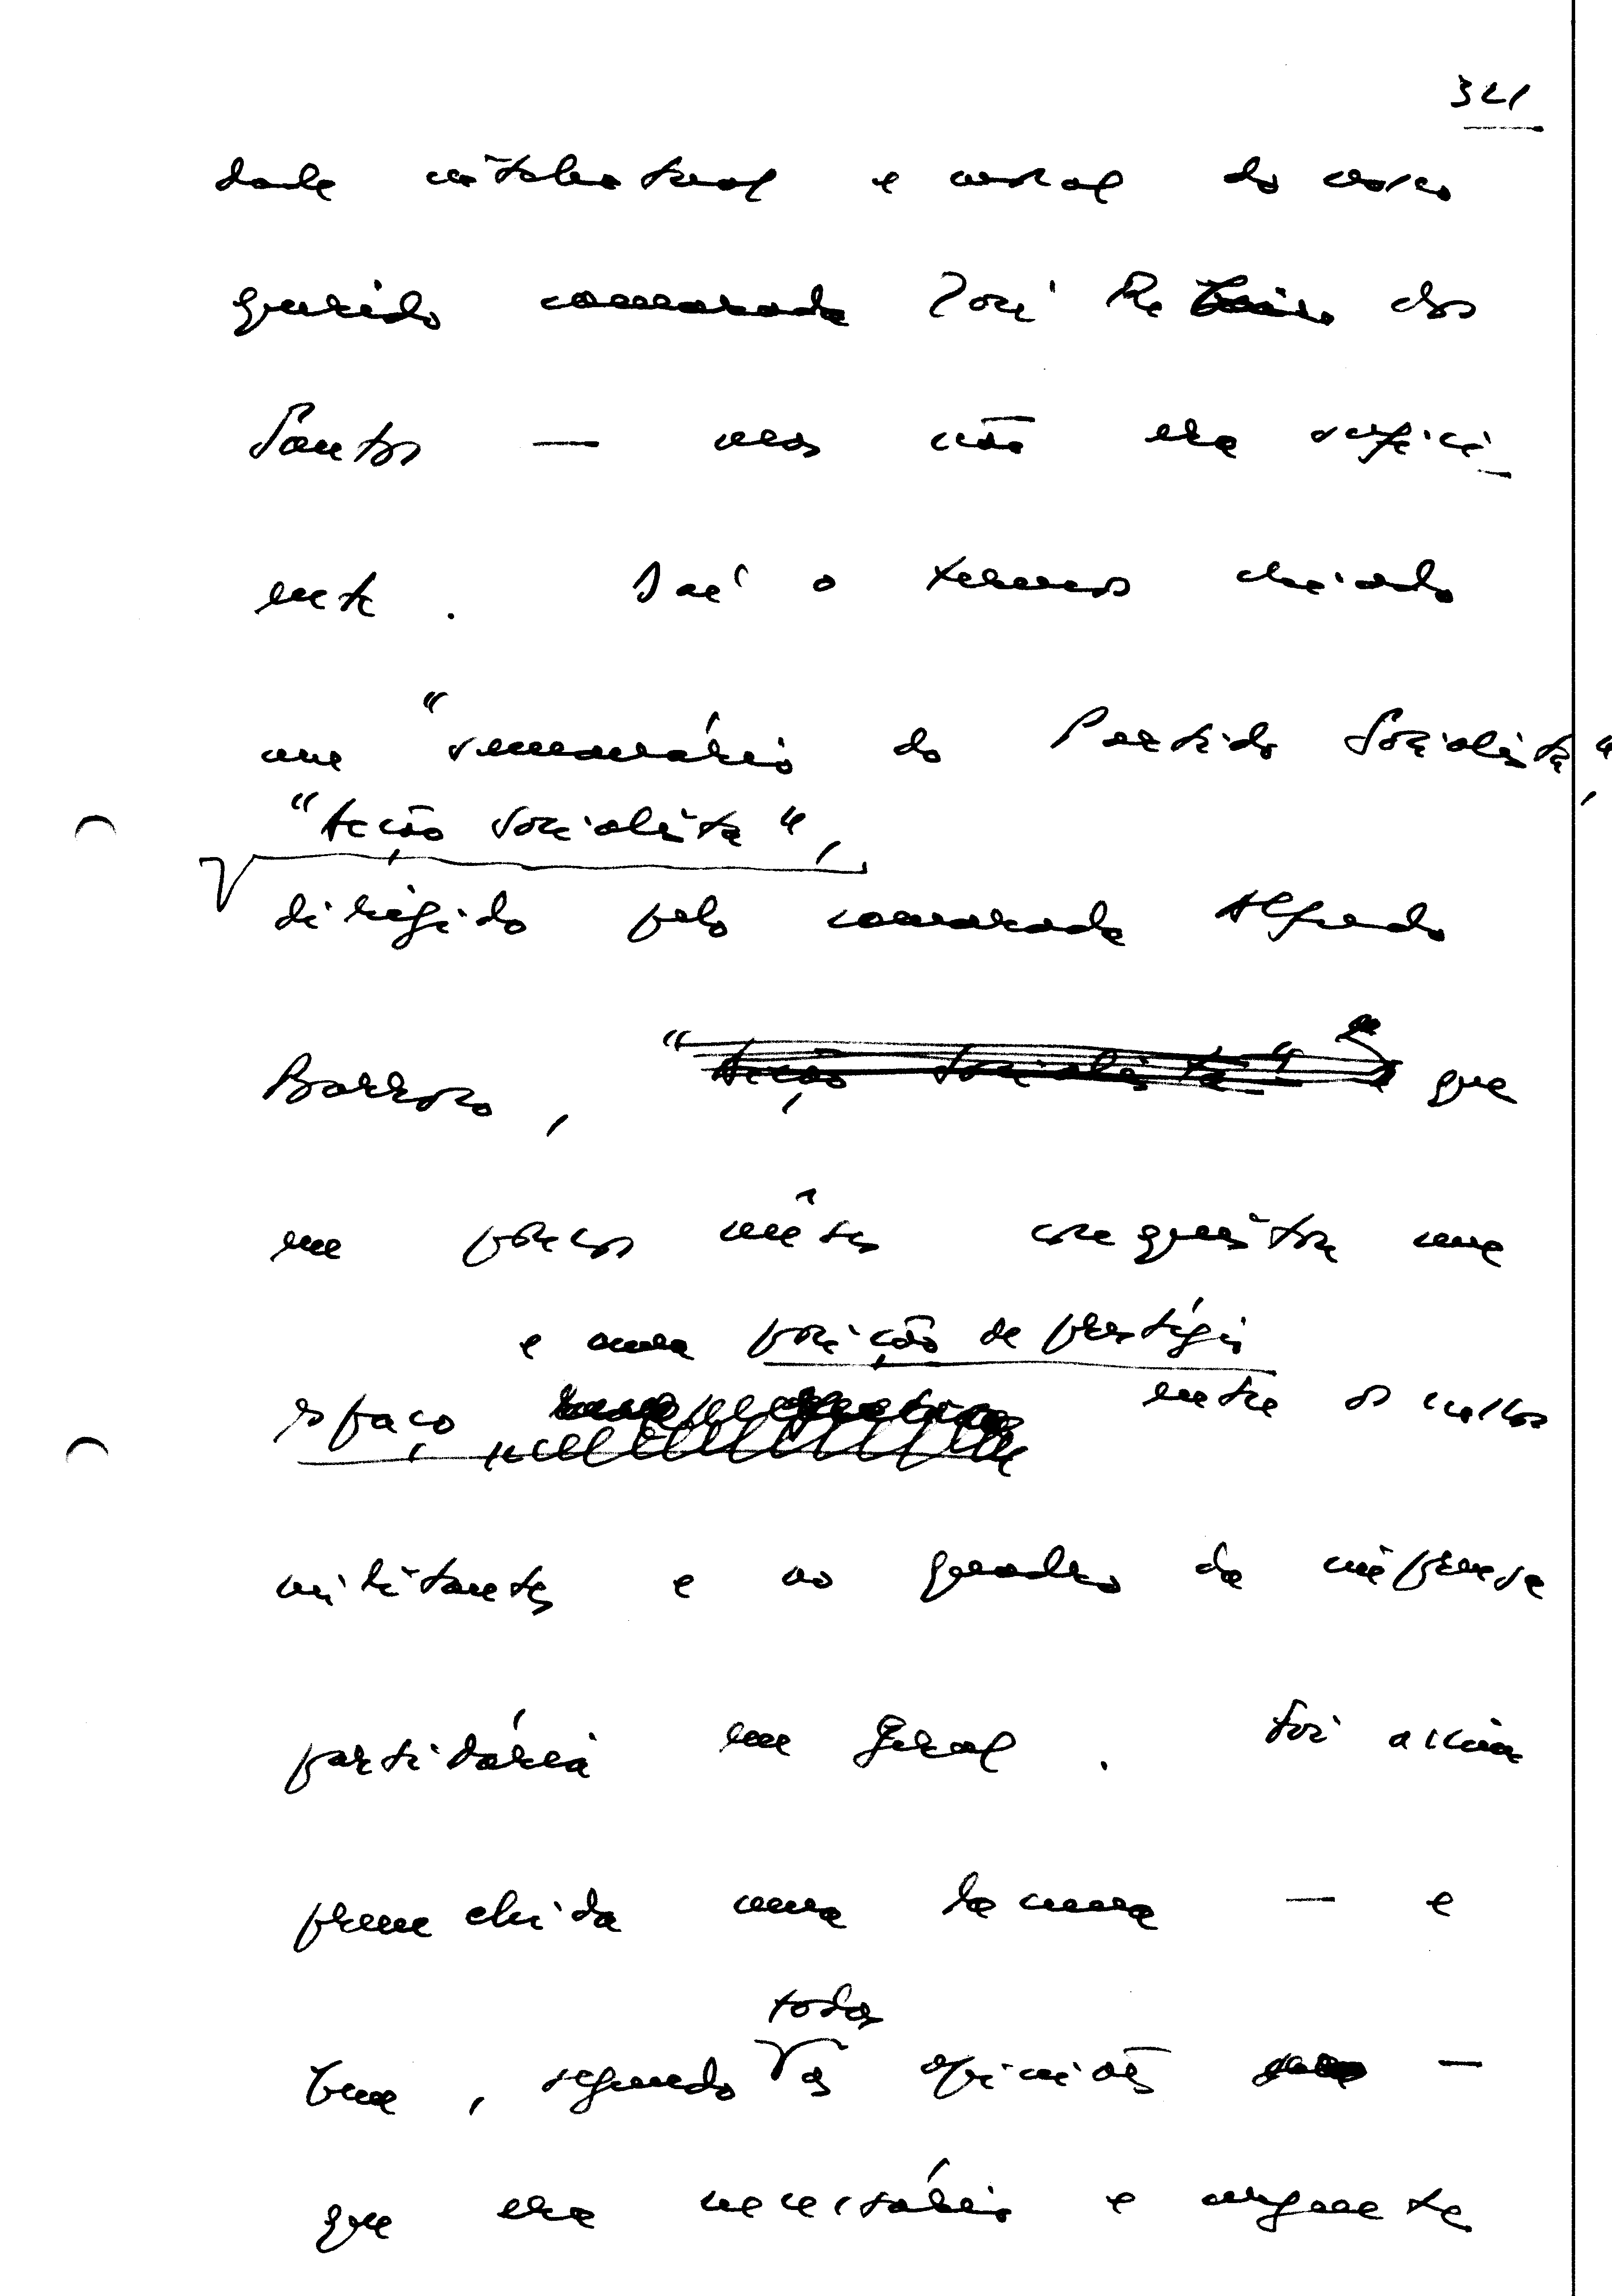 321
dade intelectual e moral do nosso
querido camarada José Ribeiro dos
Santos — mas não era sufici-
ente. Daí o termos criado
um "semanário do Partido Socialista",
"Acção Socialista",
dirigido pelo camarada Alfredo
Barroso, "Acção Socialista" que
em poucos meses conquistou um
e uma posição de prestígio
espaço entre os nossos
militantes e no quadro da imprensa
partidária em geral. Foi assim
preenchida uma lacuna — e
todas
bem, segundo as opiniões —
que era necessário e urgente